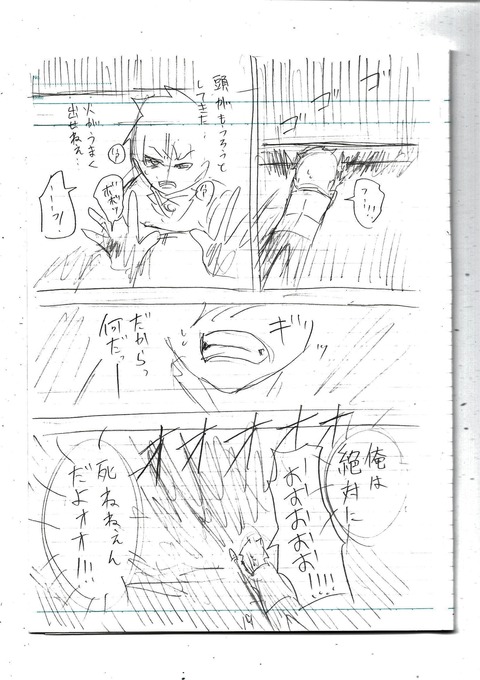 ゴ
ゴ
ゴ
っ…!!!
頭がもうろうと
してきた…
火がうまく
出せねえ…
ボボッ
ーー?!
ギッ
だからっ
何だっー
俺は
絶対に
オオオオオ
ーおおおおお!!!!
死ねねぇん
だよオオ!!!